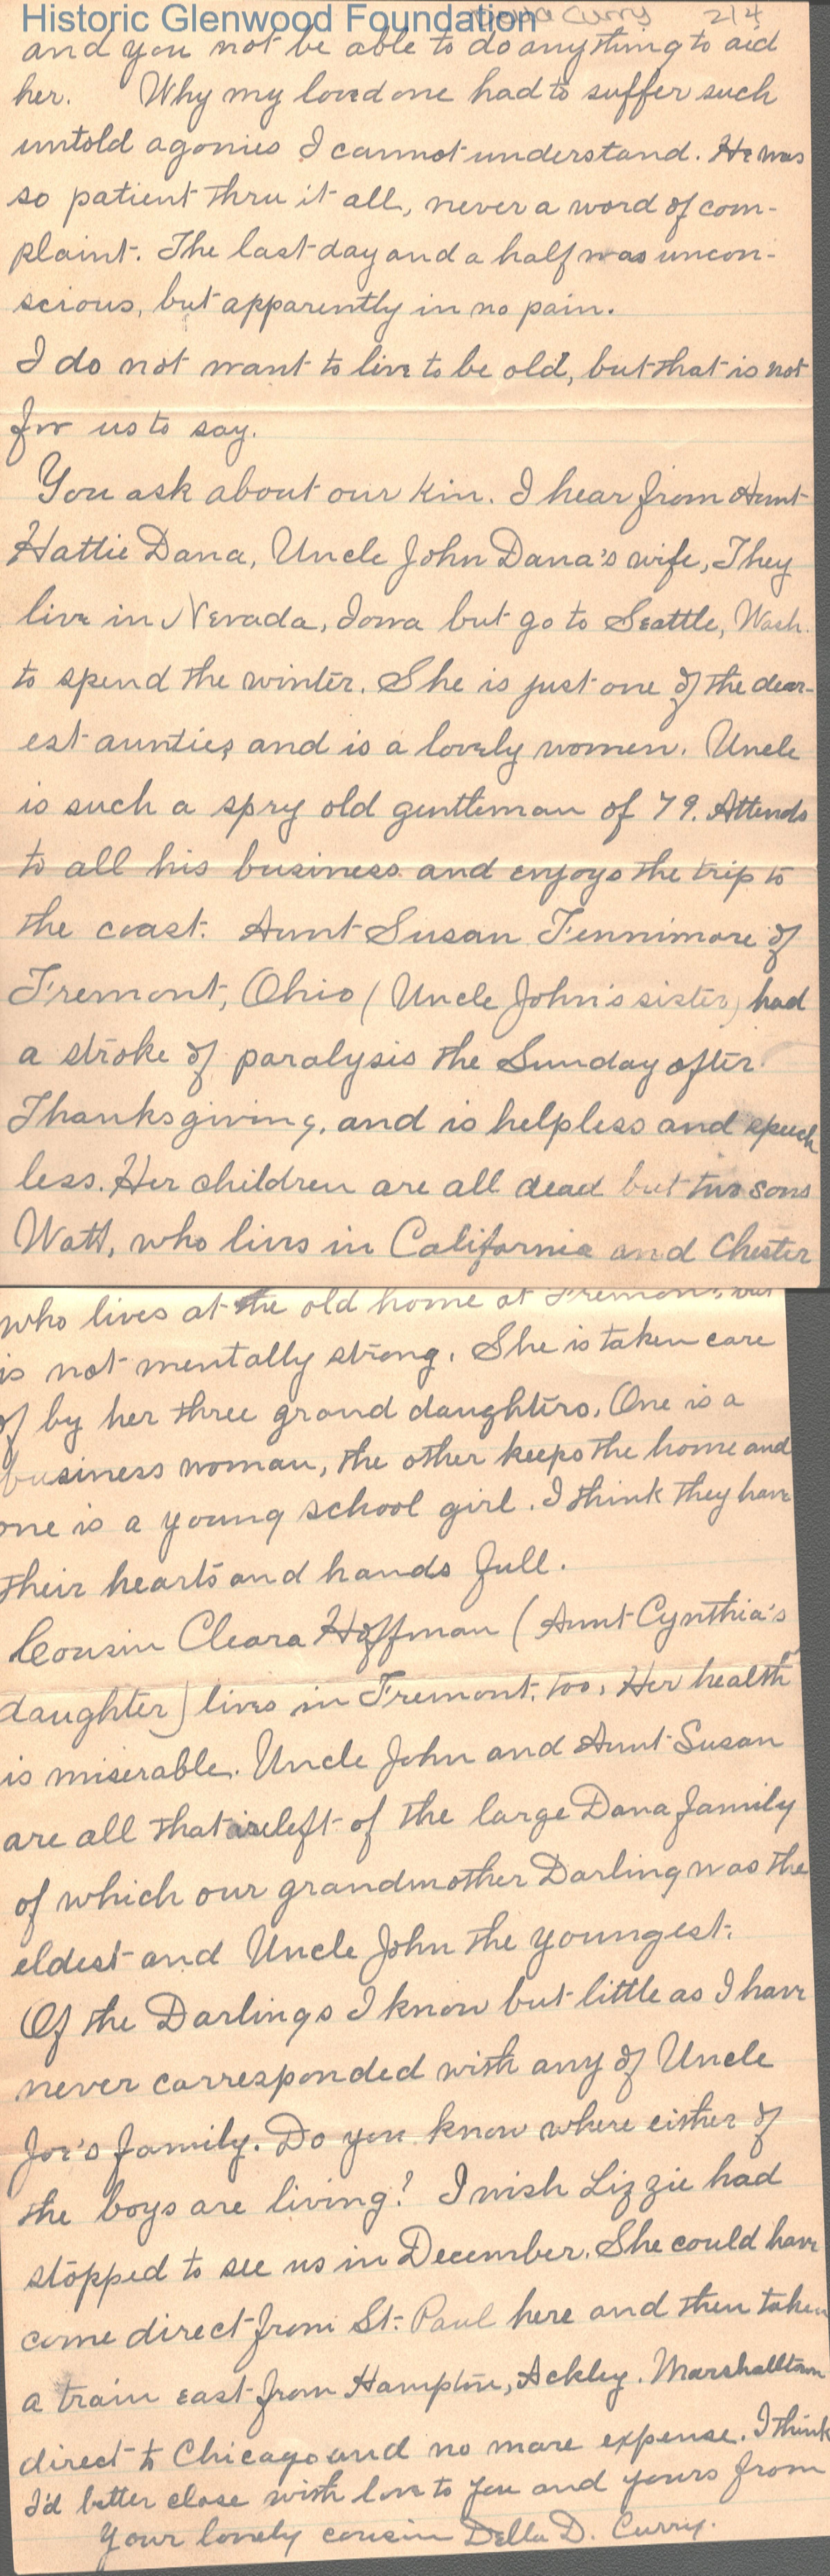 Historic Glenwood Foundation
Curry 2/4
and you not be able to do anything to aid
her. Why my loved one had to suffer such
untold agonies I cannot understand. He was
so patient thru it all, never a word of com-
plaint. The last day and a half was uncon-
scious, but apparently in no pain.
I do not want to live to be old, but that is not
for us to say.
You ask about our kin. I hear from Aunt
Hattie Dana, Uncle John Dana's wife, They
live in Nevada, Iowa but go to Seattle, Wash.
to spend the winter. She is just one of the dear-
est aunties and is a lovely women. Uncle
is such a spry old gentleman of 79. Attends
to all his business and enjoys the trip to
the coast. Aunt Susan Fennimore of
Fremont, Ohio (Uncle John's sister) had
a stroke of paralysis the Sunday after
Thanksgiving, and is helpless and speech
less. Her children are all dead but two sons
Watt, who lives in California and Chester
who lives at the old home at Fremont, but
is not mentally strong. She is taken care
of by her three grand daughters. One is a
business woman, the other keeps the home and
one is a young school girl. I think they have
their hearts and hands full.
Cousin Cleara Hoffman (Aunt Cynthia's
daughter) lives in Fremont, too, Her health
is miserable. Uncle John and Aunt Susan
are all that is left of the large Dana family
of which our grandmother Darling was the
eldest and Uncle John the youngest.
Of the Darlings I know but little as I have
never corresponded with any of Uncle
Joe's family. Do you know where either of
the boys are living? I wish Lizzie had
stopped to see us in December. She could have
come direct from St. Paul here and then taken
a train east from Hampton, Ackley, Marshalltown
direct to Chicago and no more expense. I think
I'd better close with love to you and yours from
Your lonely cousin Della D. Curry.